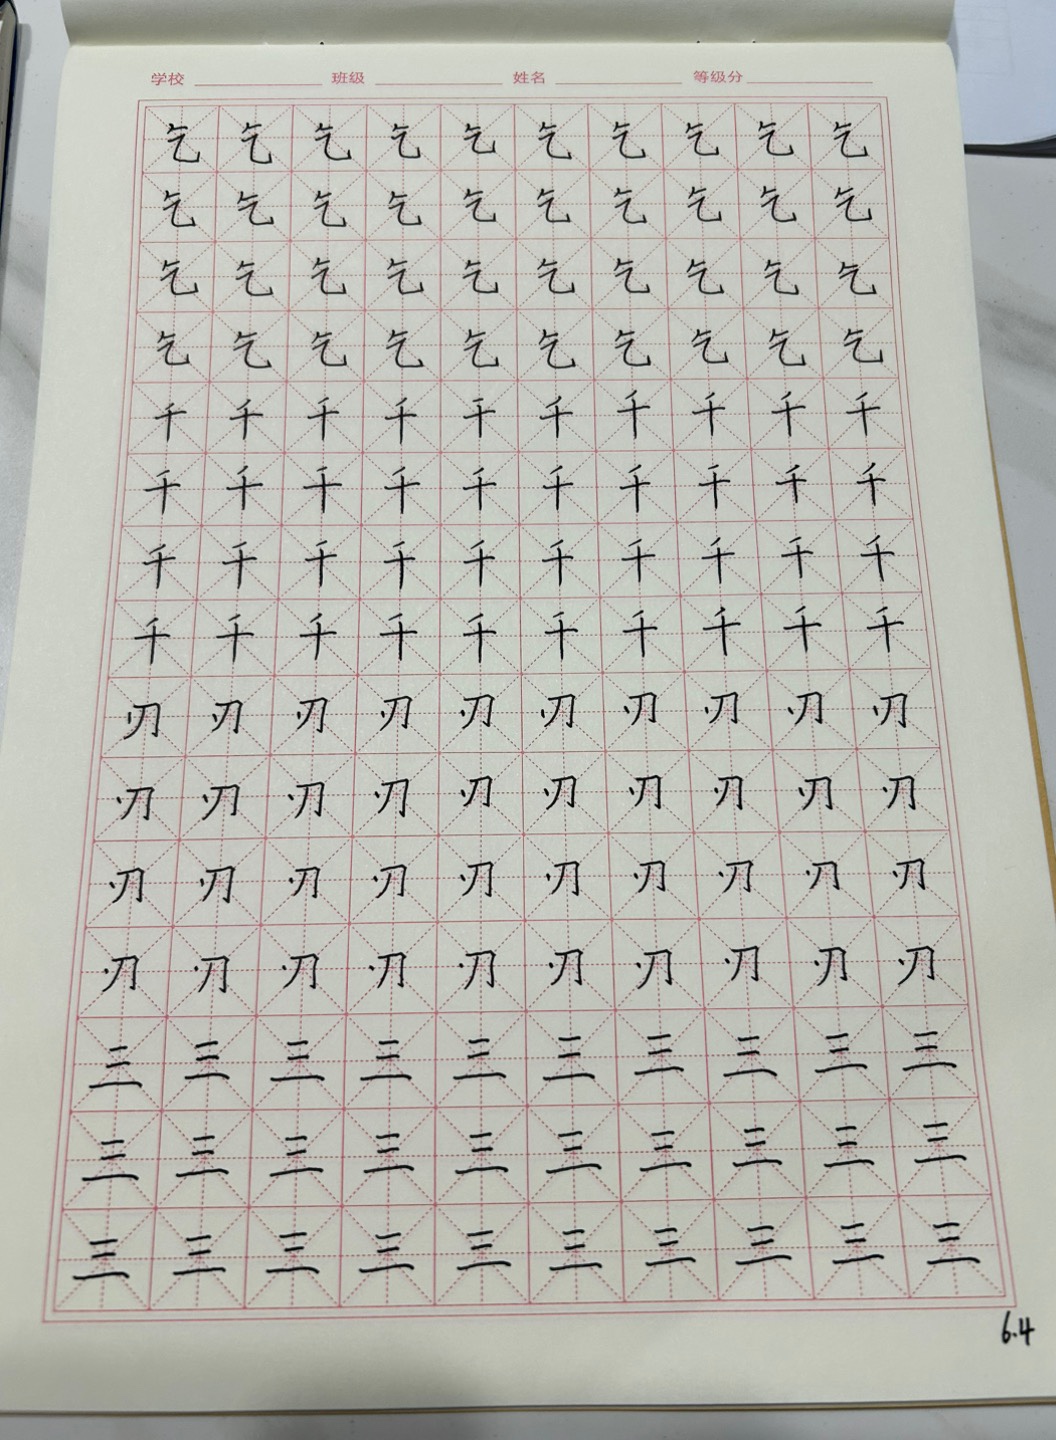 学校 班级 姓名 等级分
乞 乞 乞 乞 乞 乞 乞 乞 乞 乞
乞 乞 乞 乞 乞 乞 乞 乞 乞 乞
乞 乞 乞 乞 乞 乞 乞 乞 乞 乞
乞 乞 乞 乞 乞 乞 乞 乞 乞 乞
千 千 千 千 千 千 千 千 千 千
千 千 千 千 千 千 千 千 千 千
千 千 千 千 千 千 千 千 千 千
千 千 千 千 千 千 千 千 千 千
刃 刃 刃 刃 刃 刃 刃 刃 刃 刃
刃 刃 刃 刃 刃 刃 刃 刃 刃 刃
刃 刃 刃 刃 刃 刃 刃 刃 刃 刃
刃 刃 刃 刃 刃 刃 刃 刃 刃 刃
三 三 三 三 三 三 三 三 三 三
三 三 三 三 三 三 三 三 三 三
三 三 三 三 三 三 三 三 三 三
6.4